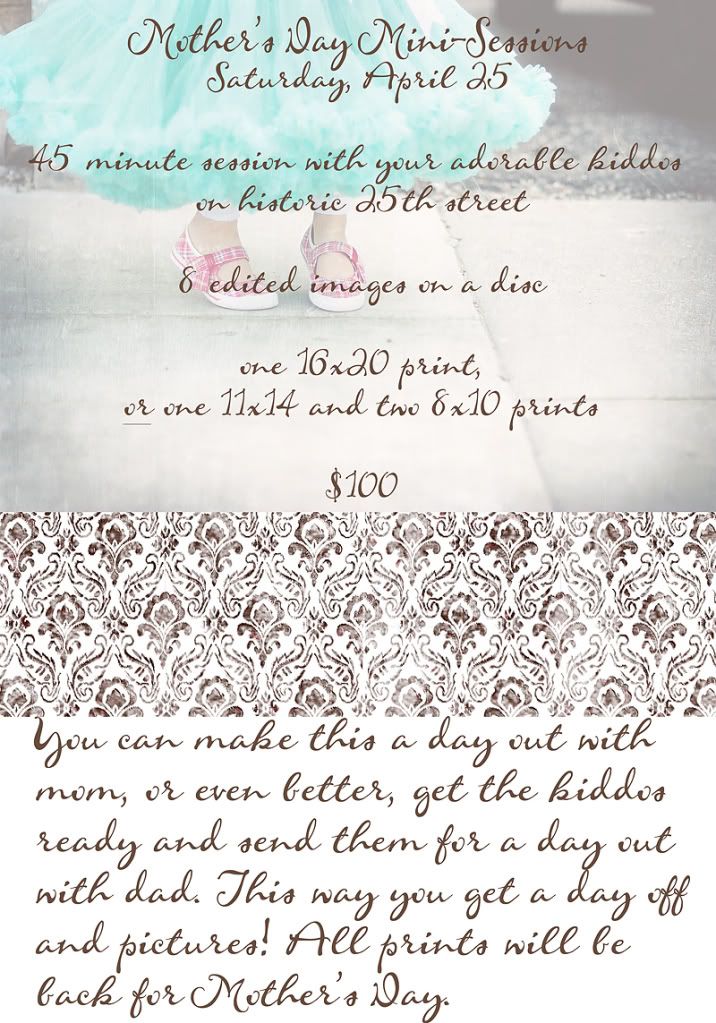 Mother's Day Mini-Sessions
Saturday, April 25
45 minute session with your adorable kiddos
on historic 25th street
8 edited images on a disc
one 16x20 print,
or one 11x14 and two 8x10 prints
$100
You can make this a day out with
mom, or even better, get the kiddos
ready and send them for a day out
with dad. This way you get a day off
and pictures! All prints will be
back for Mother's Day.